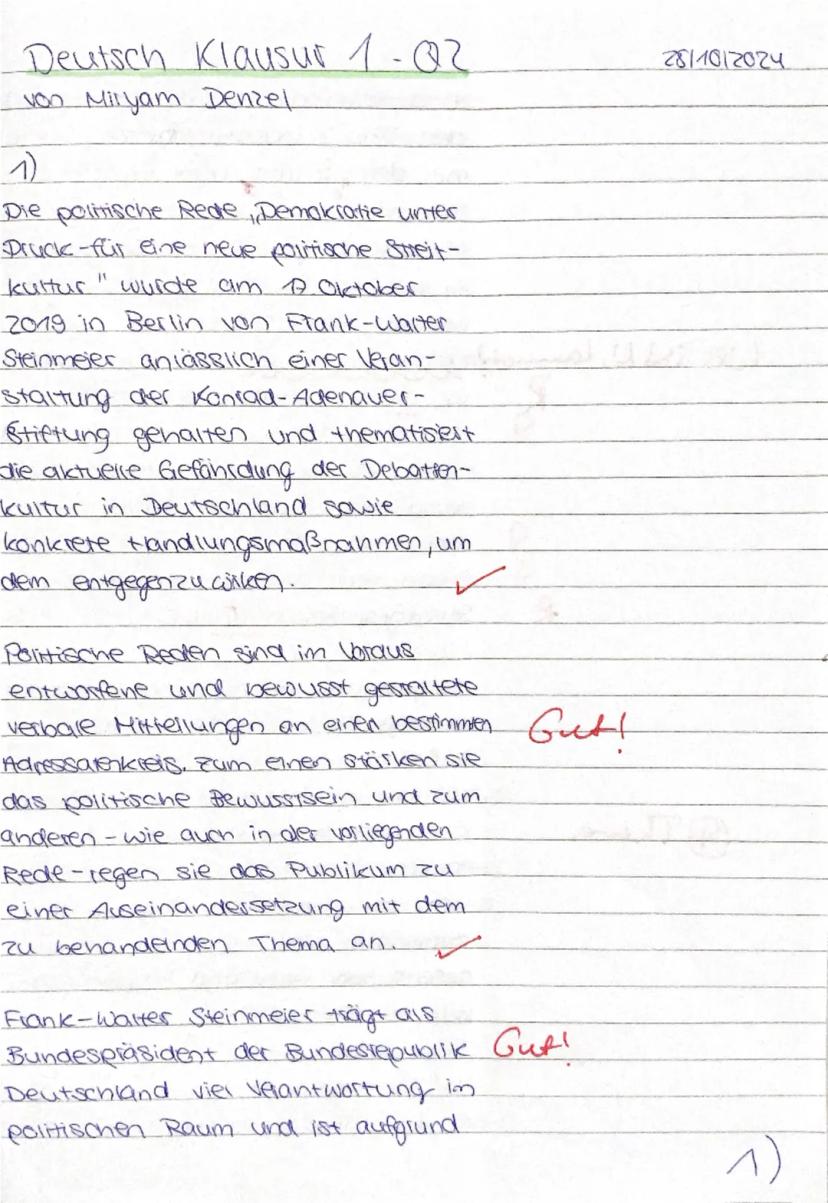 Deutsch Klausur 1 - Q2
28/10/2024
von Miryam Denzel
1)
Die politische Rede „Demokratie unter
Druck - für eine neue politische Streit-
kultur" wurde am 17. Oktober
2019 in Berlin von Frank-Walter
Steinmeier anlässlich einer Veran-
staltung der Konrad-Adenauer-
Stiftung gehalten und thematisiert
die aktuelle Gefährdung der Debatten-
kultur in Deutschland sowie
konkrete Handlungsmaßnahmen, um
dem entgegenzuwirken.
Politische Reden sind im Voraus
entworfene und bewusst gestaltete
verbale Mitteilungen an einen bestimmten Gut!
Adressatenkreis. Zum einen stärken sie
das politische Bewusstsein und zum
anderen - wie auch in der vorliegenden
Rede - regen sie das Publikum zu
einer Auseinandersetzung mit dem
zu behandelnden Thema an.
Frank-Walter Steinmeier trägt als
Bundespräsident der Bundesrepublik Gut!
Deutschland viel Verantwortung im
politischen Raum und ist aufgrund
1)